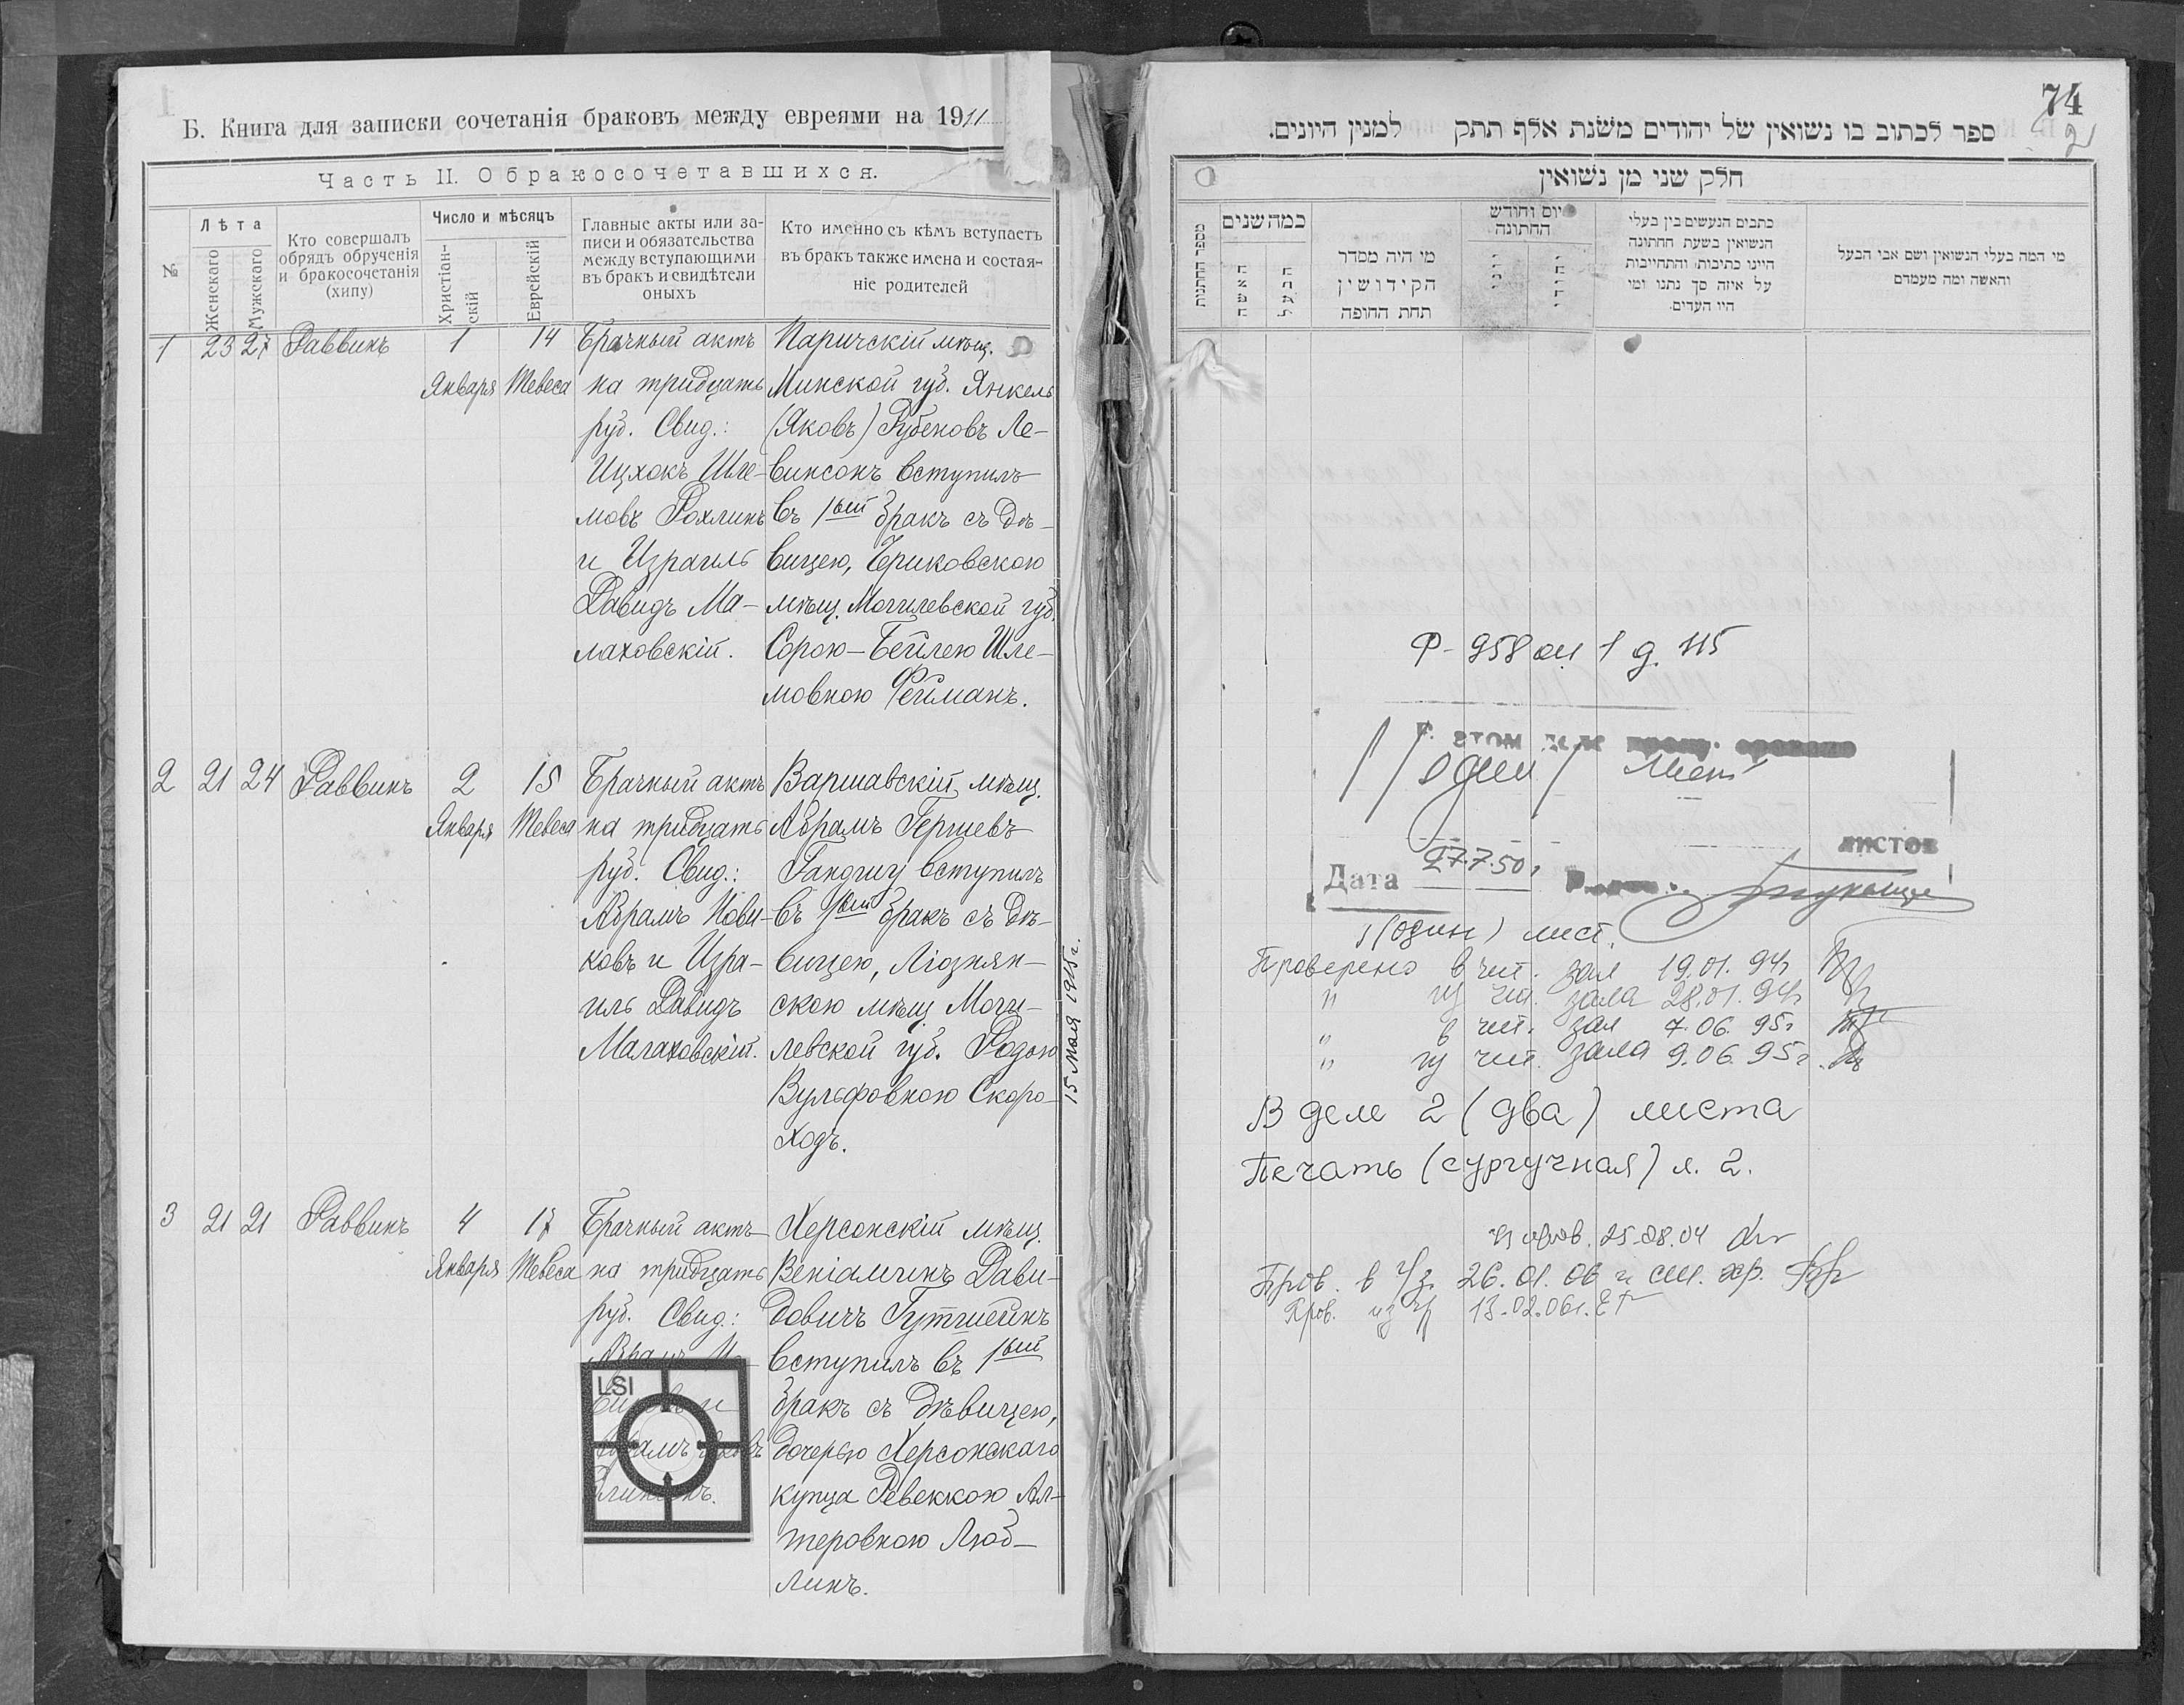 Б. Книга для записки сочетанія браковъ между евреями на 1911
Часть II. О бракосочетавшихся.
№
Лѣта
Женскаго
Мужскаго
Кто совершалъ
обрядъ обрученія
и бракосочетанія
(хипу)
Число и мѣсяцъ
Христіан-
скій
Еврейскій
Главные акты или за-
писи и обязательства
между вступающими
въ бракъ и свидѣтели
оныхъ
Кто именно съ кѣмъ вступаетъ
въ бракъ также имена и состая-
ніе родителей
1 23 27 Раввинъ 1 14 Брачный актъ Паричскій мѣщ.
Января Тевеса на тридцать Минской губ. Янкель
руб. Свид.: (Яковъ) Рубеновъ Ле-
Ицхокъ Шле- винсонъ вступилъ
мовъ Рохлинъ въ 1ый бракъ съ дѣ-
и Израиль вицею, Чериковскою
Давидъ Ма- мѣщ. Могилевской губ.
лаховскій. Сорою-Бейлею Шле-
мовною Рейманъ.
2 21 24 Раввинъ 2 15 Брачный актъ Варшавскій мѣщ.
Января Тевеса на тридцать Абрамъ Гершевъ
руб. Свид.: вступилъ
Абрамъ Нови- въ 1ый бракъ съ дѣ-
ковъ и Изра- вицею, Ліознян-
иль Давидъ скою мѣщ Моги-
Малаховскій. левской губ. Родою
Вульфовною Скоро-
ходъ.
3 21 21 Раввинъ 4 17 Брачный актъ Херсонскій мѣщ.
Января Тевеса на тридцать Веніаминъ Дави-
руб. Свид.: довичъ Гутштейнъ
Абрамъ вступилъ въ 1ый
и бракъ съ дѣвицею,
дочерью Херсонскаго
купца Ревеккою Ал-
теровною Люб-
линъ.
LSI
15 мая 1915 г.
74
2
ספר לכתוב בו נשואין של יהודים משנת אלף תתק למנין היונים.
חלק שני מן נשואין
מספר החתונות
כמה שנים
האשה
הבעל
מי היה מסדר
הקידושין
תחת החופה
יום וחודש
החתונה
יוני
יהודי
כתבים הנעשים בין בעלי
הנשואין בשעת החתונה
היינו כתיבות והתחייבות
על איזה סך נתנו ומי
היו העדים.
מי המה בעלי הנשואין ושם אבי הבעל
והאשה ומה מעמדם
Ф-958 оп 1 д. 115
В этом деле
/один/ лист
листов
Дата 27.7.50г
1 (один) лист.
Проверено в чит. зал 19.01.94г
" из чит. зала 28.01.94г
" в чит. зал 7.06.95г
" из чит. зала 9.06.95г.
В деле 2 (два) листа
Печать (сургучная) л. 2.
25.08.04
Пров. в ч/з. 26.01.06 г
Пров. из ч/з 13.02.06г.